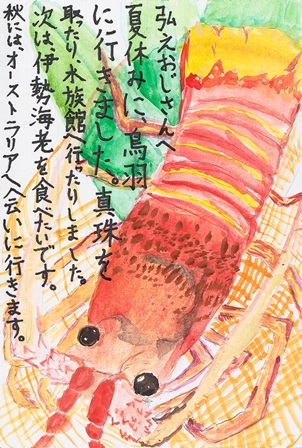 弘えおじさんへ
夏休みに、鳥羽
に行きました。真珠を
取ったり、水族館へ行ったりしました。
次は、伊勢海老を食べたいです。
秋には、オーストラリアへ会いに行きます。